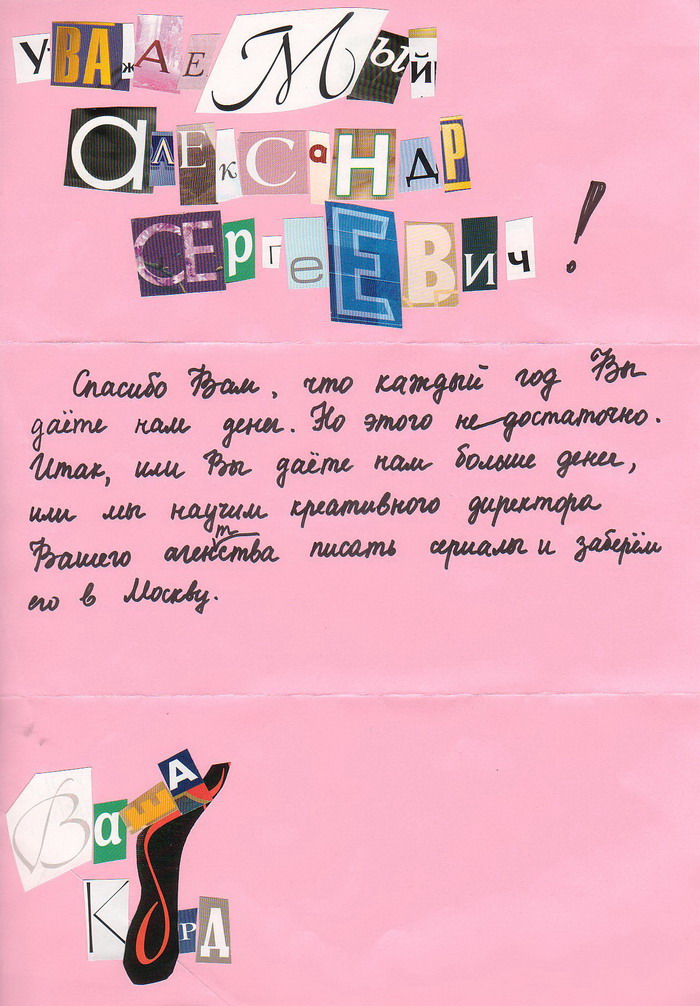 УВАжАЕМЫЙ
алЕкСаНДР
СЕргеЕВИч!
Спасибо Вам, что каждый год Вы
даёте нам денег. Но этого не достаточно.
Итак, или Вы даёте нам больше денег,
или мы научим креативного директора
Вашего агентства писать сериалы и заберём
его в Москву.
ВаША